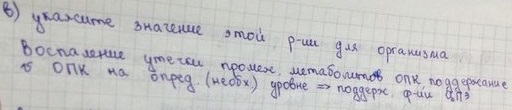 в) укажите значение этой р-ии для организма
Воспаление утечки промеж. метаболитов ОПК поддержание
ОПК на опред. (необх) уровне => поддерж. ф-ии ДПЭ